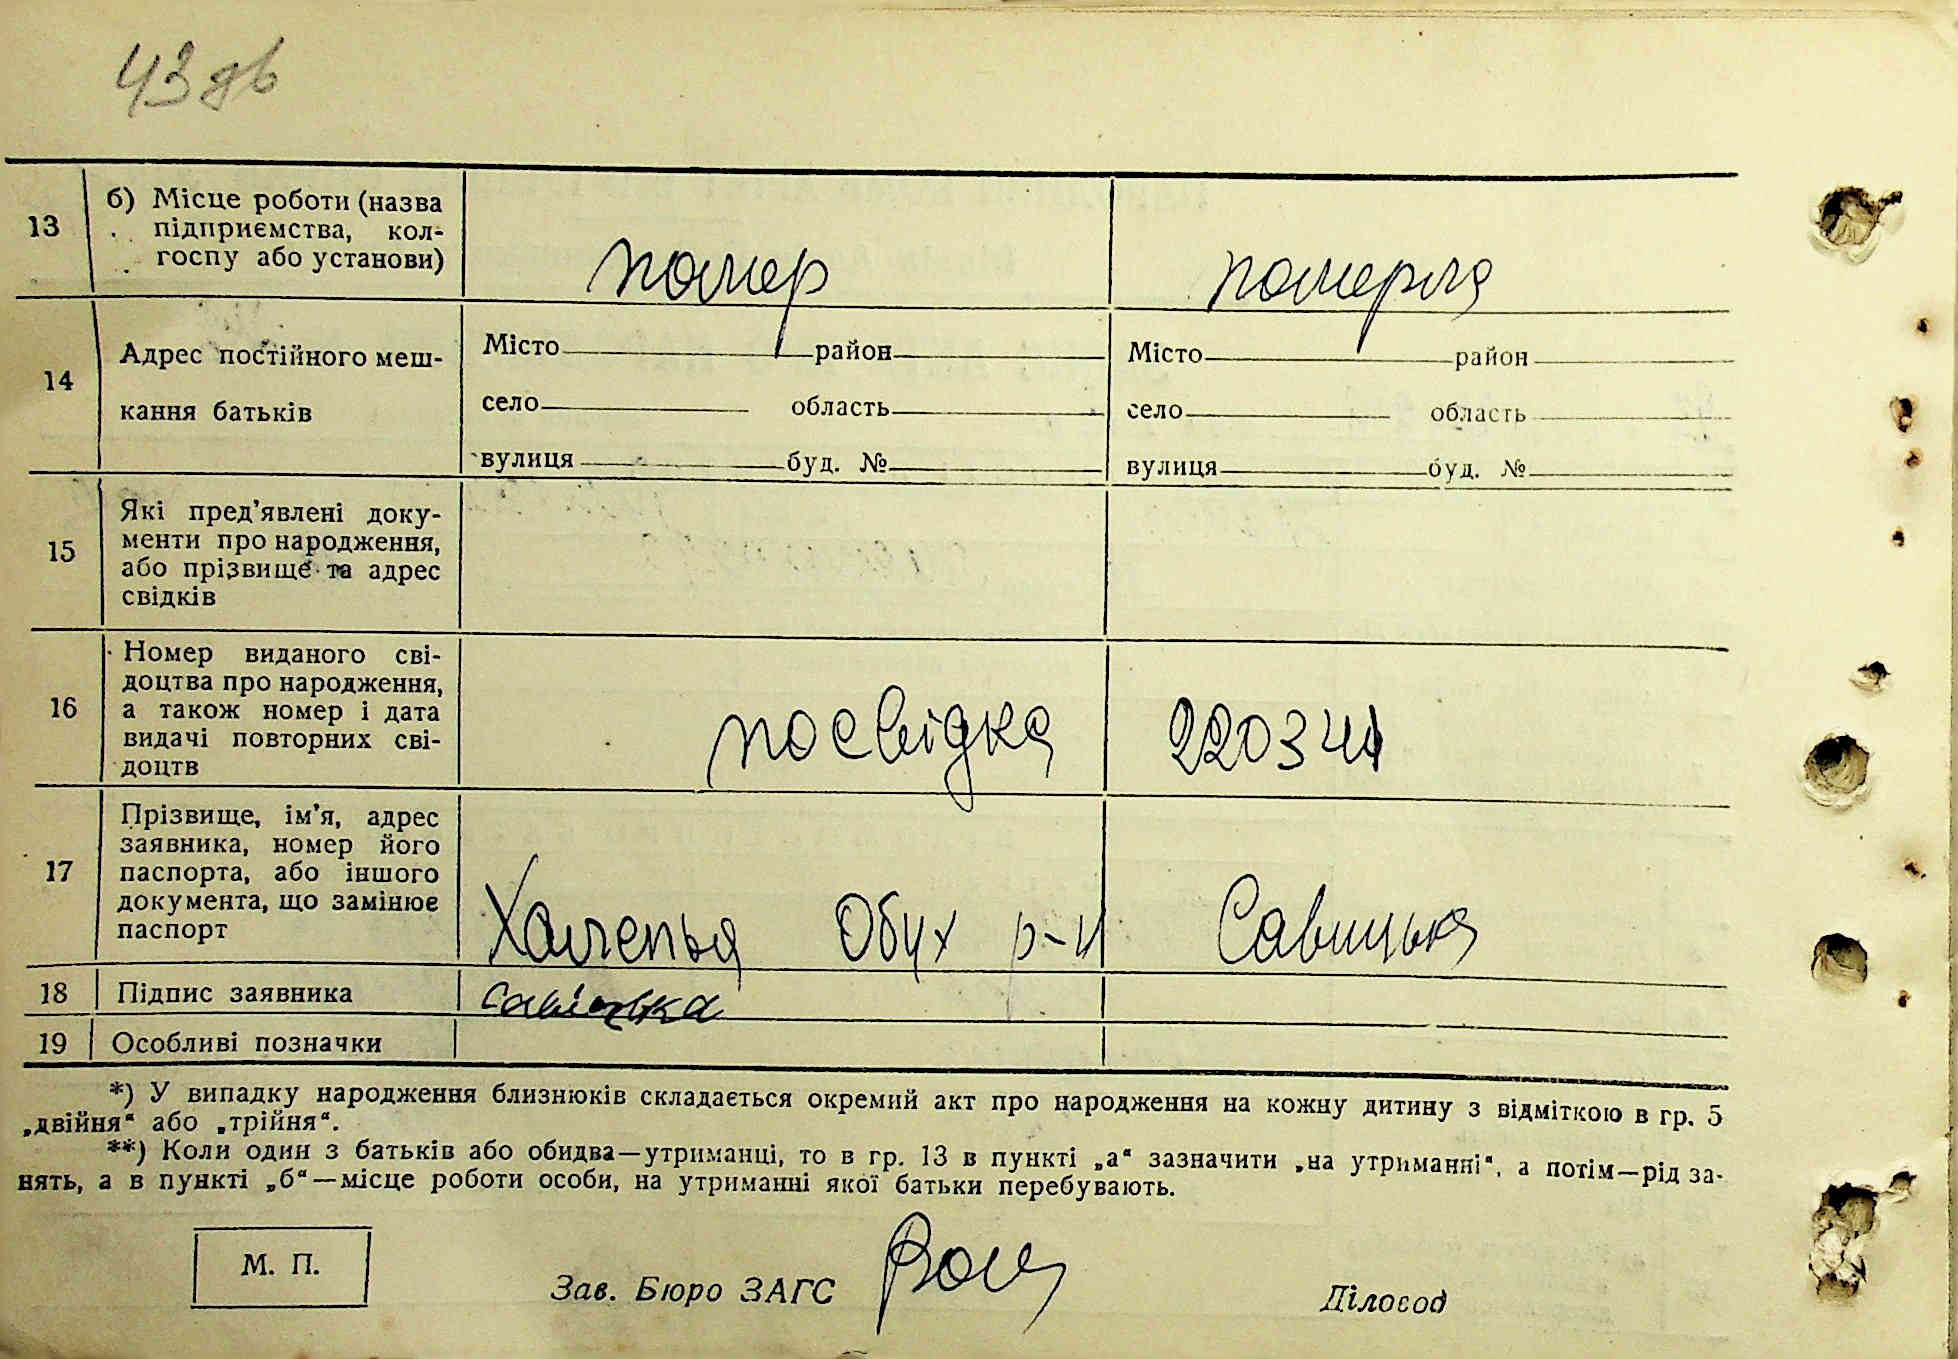 43 дв
13 б) Місце роботи (назва
підприємства, кол-
госпу або установи) помер померла
14 Адрес постійного меш-
кання батьків
Місто район Місто район
село область село область
вулиця буд. № вулиця буд. №
15 Які пред’явлені доку-
менти про народження,
або прізвище та адрес
свідків
16 Номер виданого сві-
доцтва про народження,
а також номер і дата
видачі повторних сві-
доцтв посвідка 220341
17 Прізвище, ім’я, адрес
заявника, номер його
паспорта, або іншого
документа, що замінює
паспорт Халчепья Обух р-н Савицька
18 Підпис заявника савіцька
19 Особливі позначки
*) У випадку народження близнюків складається окремий акт про народження на кожну дитину з відміткою в гр. 5
„двійня“ або „трійня“.
**) Коли один з батьків або обидва—утриманці, то в гр. 13 в пункті „а“ зазначити „на утриманні“, а потім—рід за-
нять, а в пункті „б“—місце роботи особи, на утриманні якої батьки перебувають.
М. П.
Зав. Бюро ЗАГС Діловод